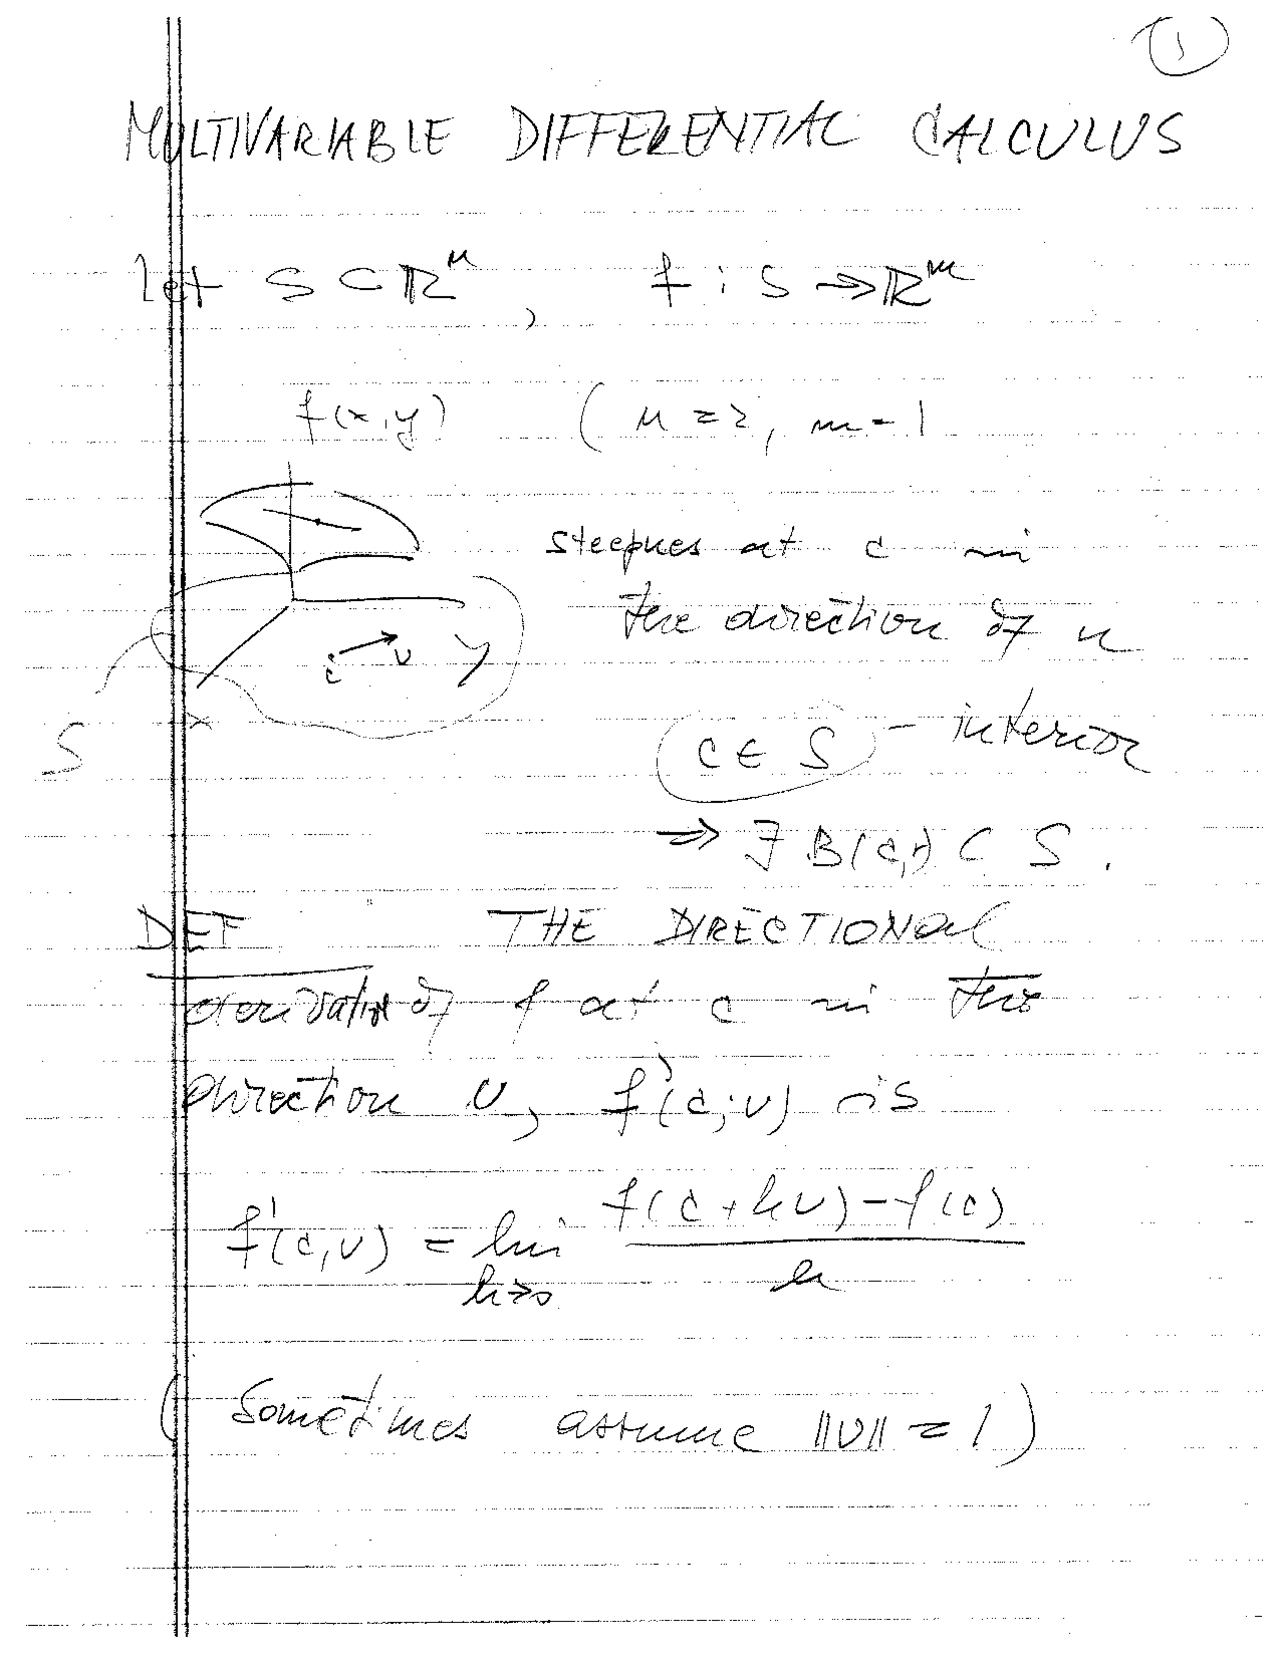 1
MULTIVARIABLE DIFFERENTIAL CALCULUS
let S ⊂ ℝⁿ, f : S → ℝᵐ
f(x,y) (n = 2, m = 1
steepnes at c in
the direction of u
c v y
S x
c ∈ S - interior
⇒ ∃ B(c,r) ⊂ S.
DEF THE DIRECTIONAL
derivative of f at c in the
direction v, f'(c;v) is
f'(c,v) = lim f(c+hv) - f(c)
h→0 h
( Sometimes assume ||v|| = 1 )